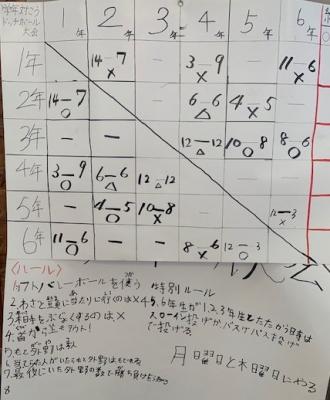 学年対こう
ドッチボール
大会
1年 2年 3年 4年 5年 6年
1年 14―7 × ― 3―9 × ― 11―6 ×
2年 14―7 ○ ― 6―6 △ 4―5 ×
3年 ― ― 12―12 △ 10―8 ○ 8―6 ○
4年 3―9 ○ 6―6 △ 12―12
5年 ― 4―5 ○ 10―8 × 12―3 ×
6年 11―6 ○ ― ― 8―6 × 12―3 ○
〈ルール〉
1.ソフトバレーボールを使う
2.わざと顔に当たりに行くのは×
3.相手をぶなぐするのは×
4.首から上セーフアウト!
5.もと外野は
6.当てられた人がいたらもと外野はもどれる
7.最後にいた外野の数で勝ち負けを
8
特別ルール
4、5、6年生が1、2、3年生とたたかう時は
スローイン投げか、バスケパス投げ
で投げる
月曜日と木曜日にやる